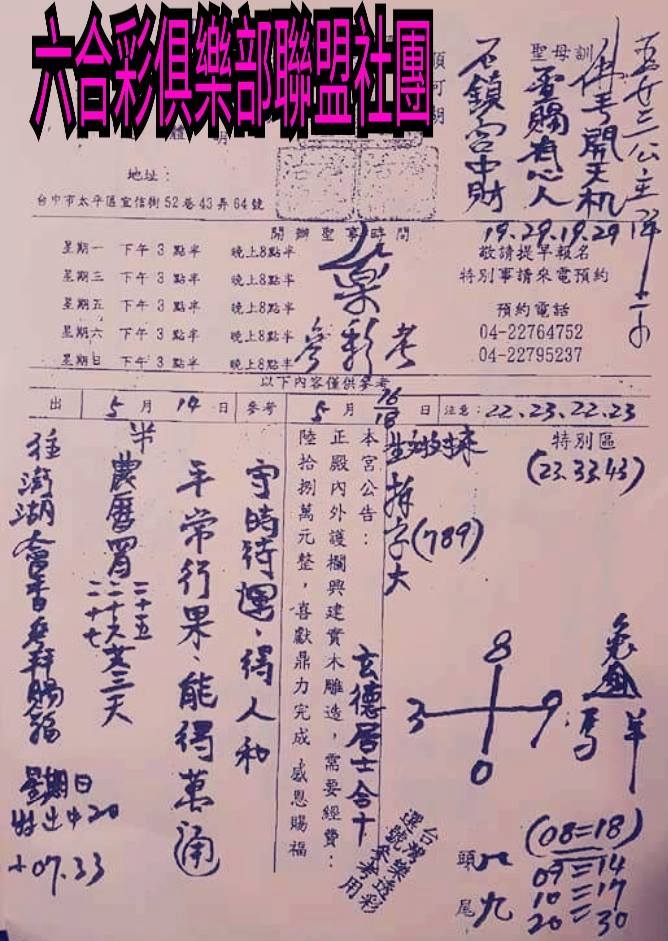 六合彩俱樂部聯盟社團
聖母訓
佛手開天机
靈賜有心人
石鎖宮中財
19.29.19.29
地址：
台中市太平區宜信街52巷43弄64號
開辦聖事時間
星期一 下午3點半 晚上8點半
星期三 下午3點半 晚上8點半
星期五 下午3點半 晚上8點半
星期六 下午3點半 晚上8點半
星期日 下午3點半 晚上8點半
敬請提早報名
特別事請來電預約
預約電話
04-22764752
04-22795237
參彩考
以下內容僅供參考
出 5月14日 參考 5月 16/18 日 注意：22.23.22.23
特別區
(23.33.43)
拆字大(789)
本宮公告：
正殿內外護欄興建實木雕造，需要經費：
陸拾捌萬元整，喜獻鼎力完成 感恩賜福
玄德居士合十
守時待運、得人和
平常行果、能得萬通
農曆
二十五
二十六
二十七
共三天
往澎湖會香
賜福
星期日
20
+07.33
8
3 9
0
兔
馬
羊
台灣樂透彩
選號參考用
頭 八
尾 九
(08=18)
09=14
10=17
20=30